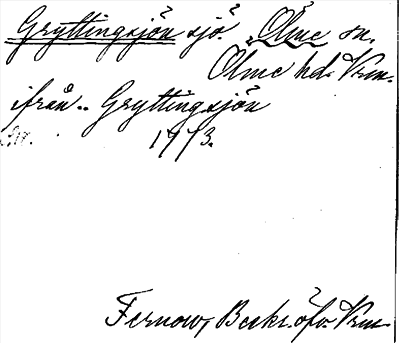 Gryttingsjön sjö. Ölme sn.
Ölme hd. Vrm.
ifrån .. Gryttingsjön
1773.
Fernow, Beskr. öfv. Vrm.